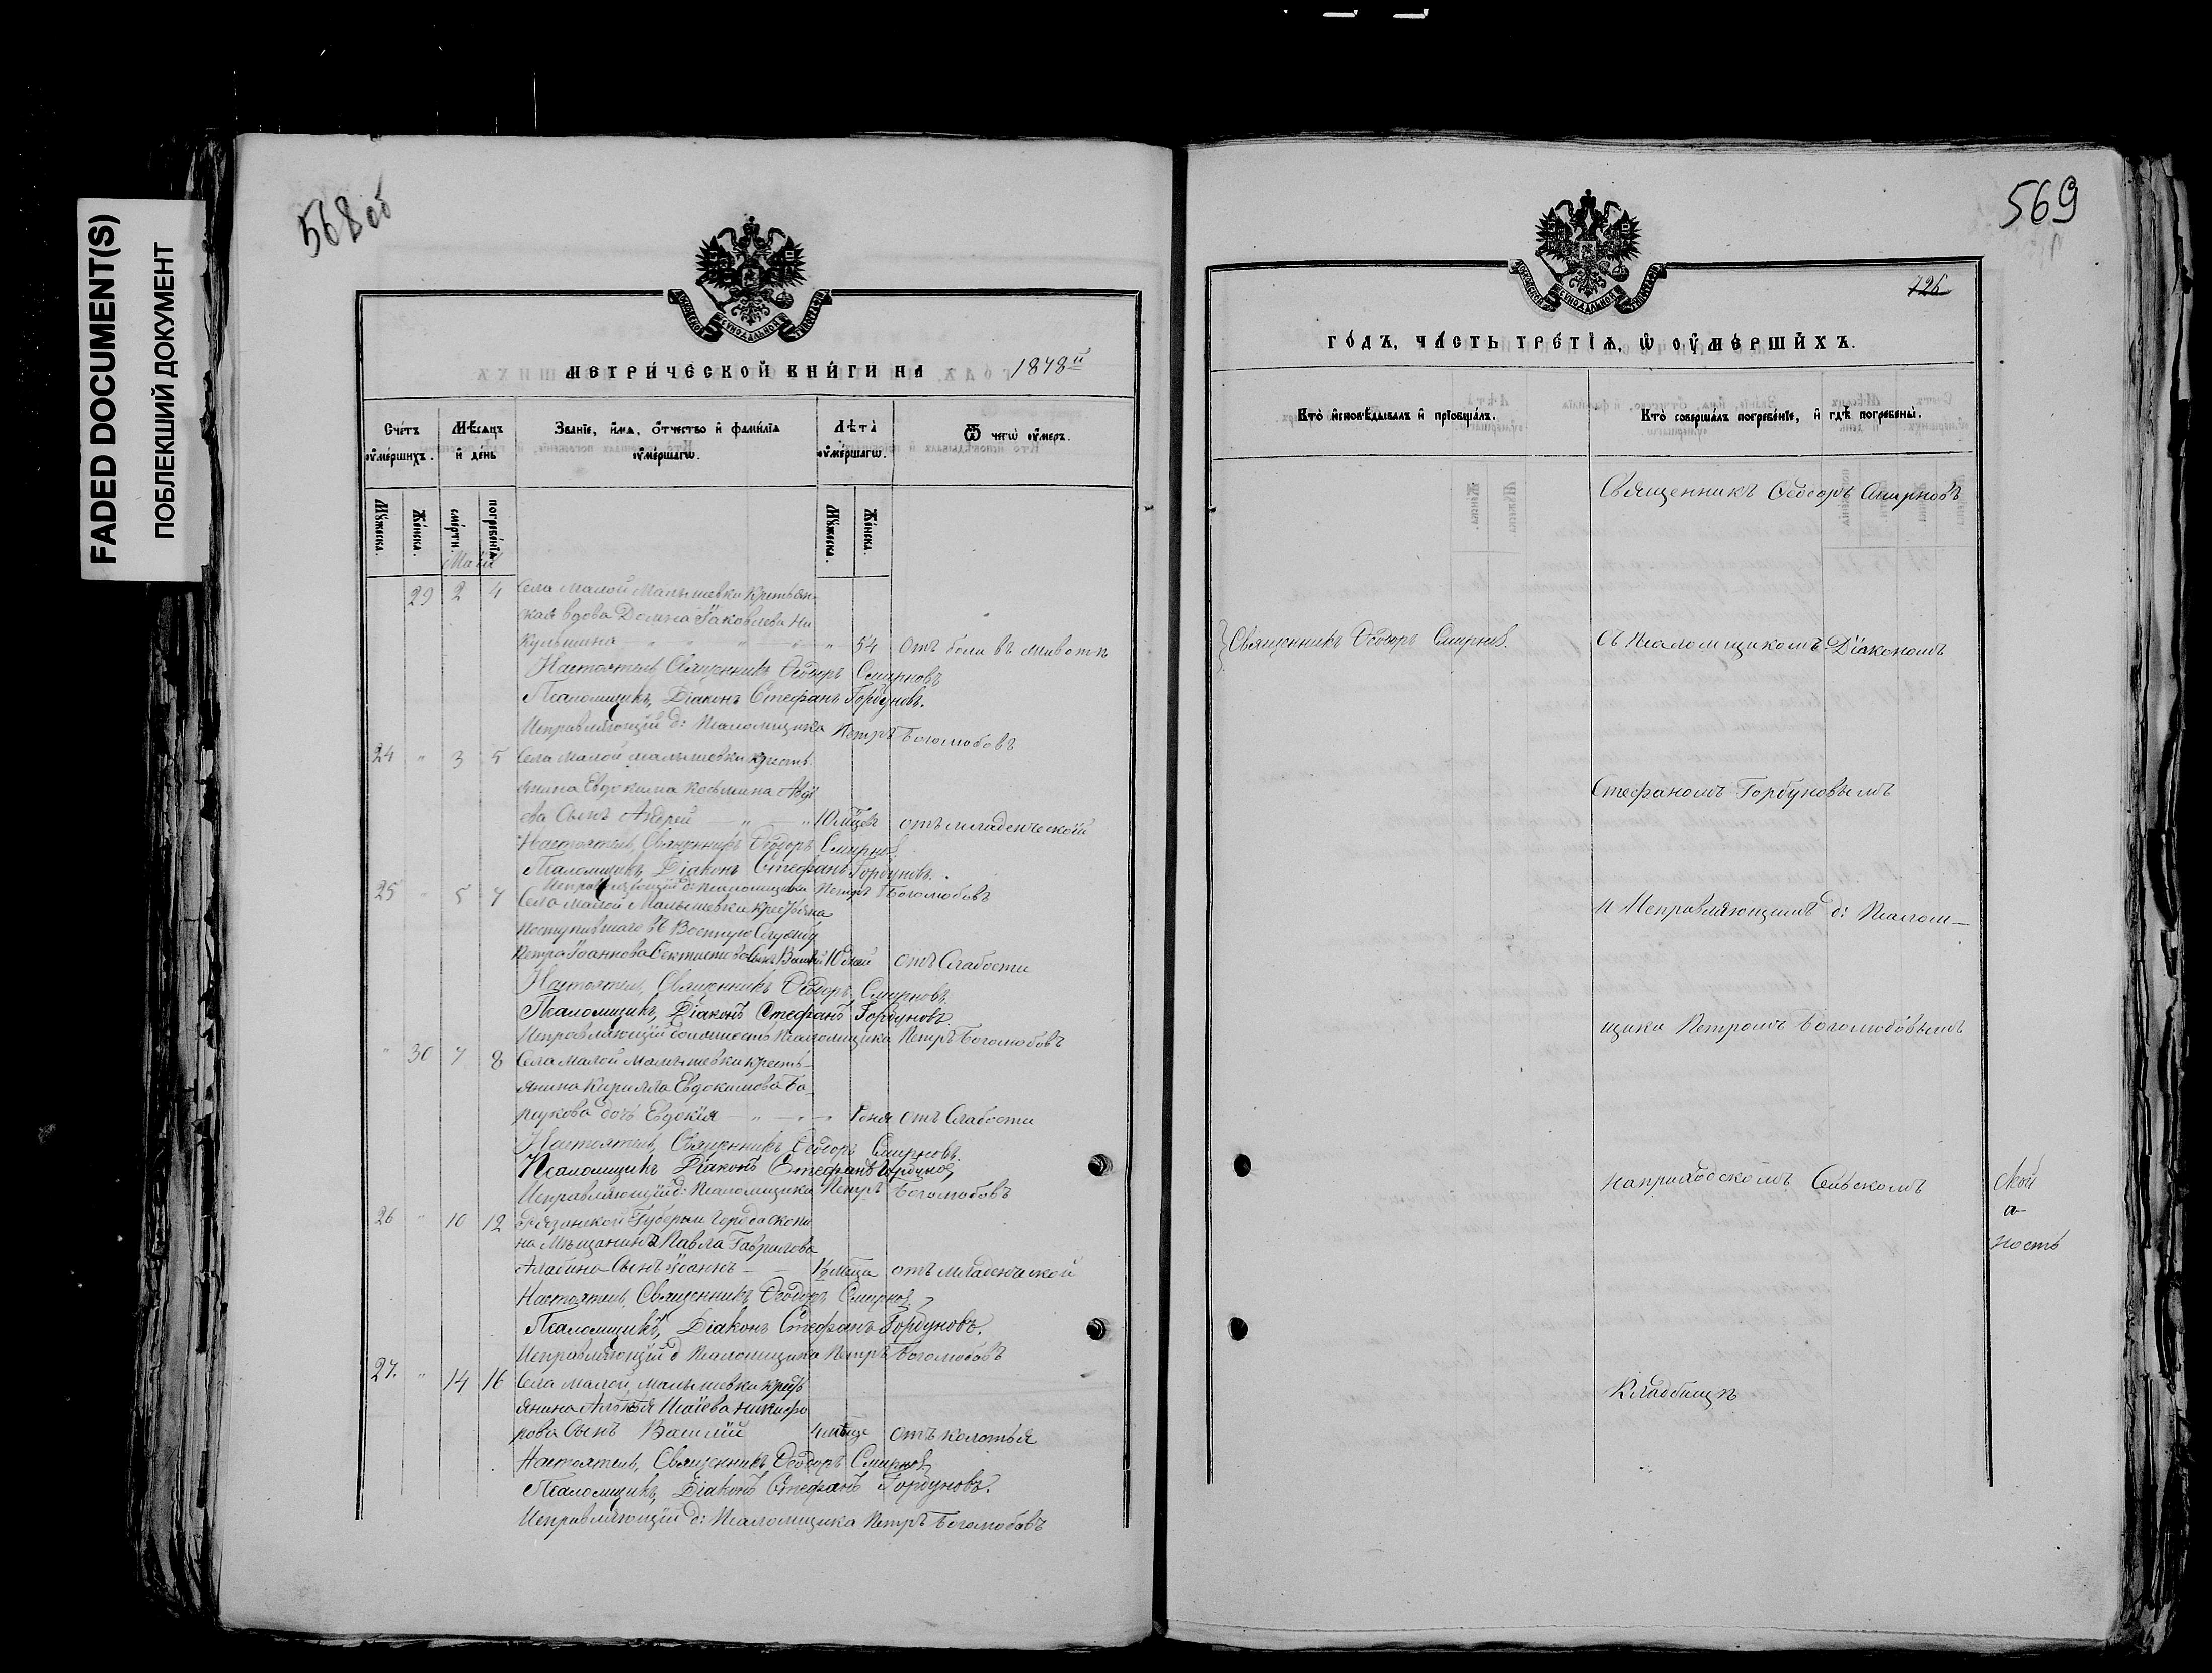 FADED DOCUMENT(S)
ПОБЛЕКШИЙ ДОКУМЕНТ
568 об
МЕТРИ́ЧЕСКОЙ КНИ́ГИ НА 1878й
Сче́тъ ᲂу҆ме́ршихъ.
Мѣ́сѧцъ и҆ де́нь
Зва́нїе, и҆́мѧ, ѻ҆́тчество и҆ фамѝлїѧ ᲂу҆ме́ршагѡ.
Лѣ́та ᲂу҆ме́ршагѡ.
Ѿ чегѡ̀ ᲂу҆́меръ.
Мꙋ́жеска.
Же́нска.
сме́рти.
погребе́нїѧ.
Мꙋ́жеска.
Же́нска.
Май
29 2 4 Села Малой Малышевки крестьян-
ская вдова Домна Іаковлева Ни
кульшина — „ — „ — „ 54 отъ боли въ животѣ
Настоятель, Священникъ Ѳеодоръ Смирновъ
Псаломщикъ, Діаконъ Стефанъ Горбуновъ.
Исправляющій д: Псаломщика Петръ Боголюбовъ
24 „ 3 5 Села Малой Малышевки кресть
янина Евдокима Косьмина
ева Сынъ Андрей — „ — „ 10 мѣсяц отъ младенческой
Настоятель, Священникъ Ѳеодоръ Смирнов
Псаломщикъ, Діаконъ Стефанъ Горбуновъ.
Исправляющій д: Псаломщика Петръ Боголюбовъ
25 „ 5 7 Села Малой Малышевки крестьяна
поступившаго въ Военную Службу
Петра Іоаннова сынъ 10 дней отъ Слабости
Настоятель, Священникъ Ѳеодоръ Смирновъ.
Псаломщикъ, Діаконъ Стефанъ Горбуновъ.
Исправляющій должность Псаломщика Петръ Боголюбовъ
„ 30 7 8 Села Малой Малышевки кресть-
янина Кирилла Евдокимова Ба-
рсукова дочь Евдокія — „ — „ дня отъ Слабости
Настоятель, Священникъ Ѳеодоръ Смирновъ.
Псаломщикъ Діаконъ Стефанъ Горбунов
Исправляющій д: Псаломщика Петръ Боголюбовъ
26 „ 10 12 Рязанской Губерніи Города Скопи
на Мѣщанина Павла Гаврилова
Сынъ Іоаннъ — 1½ мѣсяца отъ младенческой
Настоятель, Священникъ Ѳеодоръ Смирнов
Псаломщикъ, Діаконъ Стефанъ Горбуновъ.
Исправляющій д Псаломщика Петръ Боголюбовъ
27. „ 14 16 Села Малой Малышевки крест
янина Исаіева Никифо
рова Сынъ Василій 4 мѣсяца отъ колотья
Настоятель, Священникъ Ѳеодоръ Смирнов
Псаломщикъ, Діаконъ Стефанъ Горбуновъ.
Исправляющій д: Псаломщика Петръ Боголюбовъ
569
126
ГО́ДЪ, ЧА́СТЬ ТРЕ́ТЇѦ, Ѡ҆ ОУ҆МЕ́РШИХЪ.
Кто̀ и҆сповѣ́дывалъ и҆ прїобща́лъ.
Кто̀ соверша́лъ погребе́нїе, и҆ гдѣ̀ погребены̀.
Священникъ Ѳеодоръ Смирновъ
Священникъ Ѳеодоръ Смирнов.
съ Псаломщикомъ Діакономъ
Стефаномъ Горбуновымъ
и Исправляющимъ д: Псалом—
щика Петромъ Боголюбовымъ
на приходскомъ Сельскомъ
Кладбищѣ
ской
а-
ность